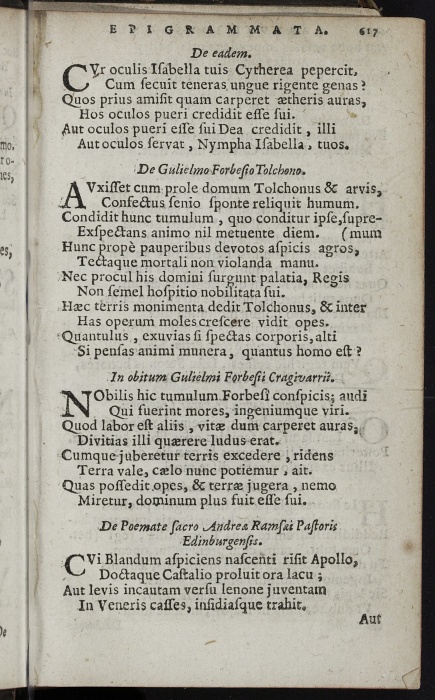 EPIGRAMMATA. 617
De eadem.
CVr oculis Iſabella tuis Cytherea pepercit,
Cum ſecuit teneras ungue rigente genas?
Quos prius amiſit quam carperet ætheris auras,
Hos oculos pueri credidit eſſe ſui.
Aut oculos pueri eſſe ſui Dea credidit, illi
Aut oculos ſervat, Nympha Iſabella, tuos.
De Gulielmo Forbeſio Tolchono.
AVxiſſet cum prole domum Tolchonus & arvis,
Confectus ſenio ſponte reliquit humum.
Condidit hunc tumulum, quo conditur ipſe, ſupre-
Exſpectans animo nil metuente diem. (mum
Hunc propè pauperibus devotos aſpicis agros,
Tectaque mortali non violanda manu.
Nec procul his domini ſurgunt palatia, Regis
Non ſemel hoſpitio nobilitata ſui.
Hæc terris monimenta dedit Tolchonus, & inter
Has operum moles creſcere vidit opes.
Quantulus, exuvias ſi ſpectas corporis, alti
Si penſas animi munera, quantus homo eſt?
In obitum Gulielmi Forbeſii Cragivarrii.
NObilis hic tumulum Forbeſi conſpicis; audi
Qui fuerint mores, ingeniumque viri.
Quod labor eſt aliis, vitæ dum carperet auras,
Divitias illi quærere ludus erat.
Cumque juberetur terris excedere, ridens
Terra vale, cælo nunc potiemur, ait.
Quas poſſedit opes, & terræ jugera, nemo
Miretur, dominum plus fuit eſſe ſui.
De Poemate ſacro Andreæ Ramſæi Paſtoris
Edinburgenſis.
CVi Blandum aſpiciens naſcenti riſit Apollo,
Doctaque Caſtalio proluit ora lacu;
Aut levis incautam verſu lenone juventam
In Veneris caſſes, inſidiaſque trahit.
Aut